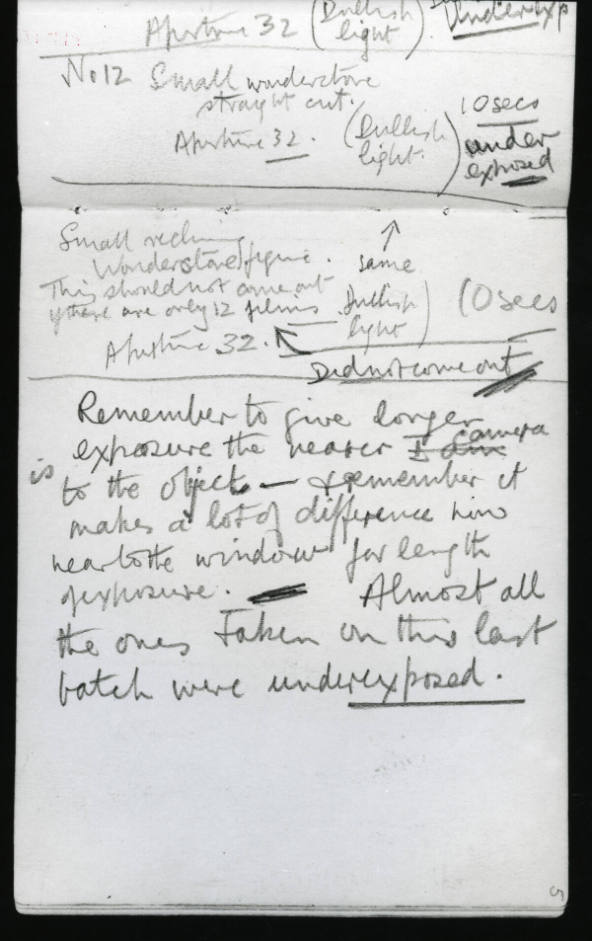 Aperture 32 (Dullish light). Underexp
No 12 Small wonderstone
straight cut. 10 secs
Aperture 32. (Dullish light.) under exposed
Small reclining ↑
Wonderstone figure. same
This should not come out
if there are only 12 films (Dullish light) 10 secs
Aperture 32.
Did not come out
Remember to give longer
exposure the nearer I am camera
is to the object — & remember it
makes a lot of difference how
near to the window for length
of exposure. — Almost all
the ones taken on this last
batch were underexposed.